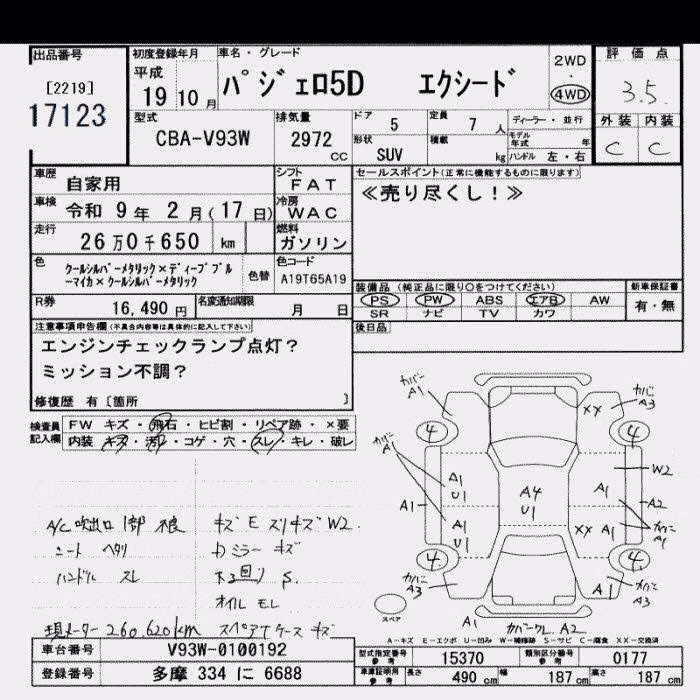 出品番号
[2219]
17123
初度登録年月
平成
19 10 月
車名・グレード
パジェロ5D エクシード
2WD
・
4WD
評価点
3.5
外装 内装
C C
型式
CBA-V93W
排気量
2972
CC
ドア 5
定員 7 人
形状 SUV
積載 kg
ディーラー・並行
モデル年式 年
ハンドル 左・右
車歴 自家用
シフト FAT
車検 令和 9 年 2 月(17 日)
冷房 WAC
走行 26万0千650 km
燃料 ガソリン
色 クールシルバーメタリック×ディープブル
ーマイカ×クールシルバーメタリック
色替
色コード
A19T65A19
R券 16,490 円
名変通知期限 月 日
セールスポイント(正常に機能するものに限ります)
≪売り尽くし!≫
装備品 (純正品に限り○をつけてください)
PS PW ABS エアB AW
SR ナビ TV カワ
新車保証書
有・無
後日品
注意事項申告欄(不具合内容等は具体的に記入して下さい)
エンジンチェックランプ点灯?
ミッション不調?
修復歴 有〔箇所 〕
検査員
記入欄
FW キズ・飛石・ヒビ割・リペア跡・×要
内装 キズ・汚れ・コゲ・穴・スレ・キレ・破レ
A/C 吹出口 1部 不良
シート ヘタリ
ハンドル スレ
現メーター 260,620km
キズ E ズリキズ W2
カミラー キズ
下回り S
オイル モレ
スペアTケース キズ
カバー A1
カバー A3
XX
4
4
カバー A1
A1
A1
U1
A1
U1
A4
U1
A1
XX A1
W2
A2
カバー A1
4
4
カバー A3
A1
カバー A3
スペア
A1
カバーワレ A2
A-キズ E-エクボ U-凹み W-補修跡 S-サビ C-腐食 XX-交換済
車台番号 V93W-0100192
登録番号 多摩 334 に 6688
型式指定番号
参考
15370
類別区分番号
参考
0177
車庫証明用
参考
長さ 490 cm
幅 187 cm
高さ 187 cm